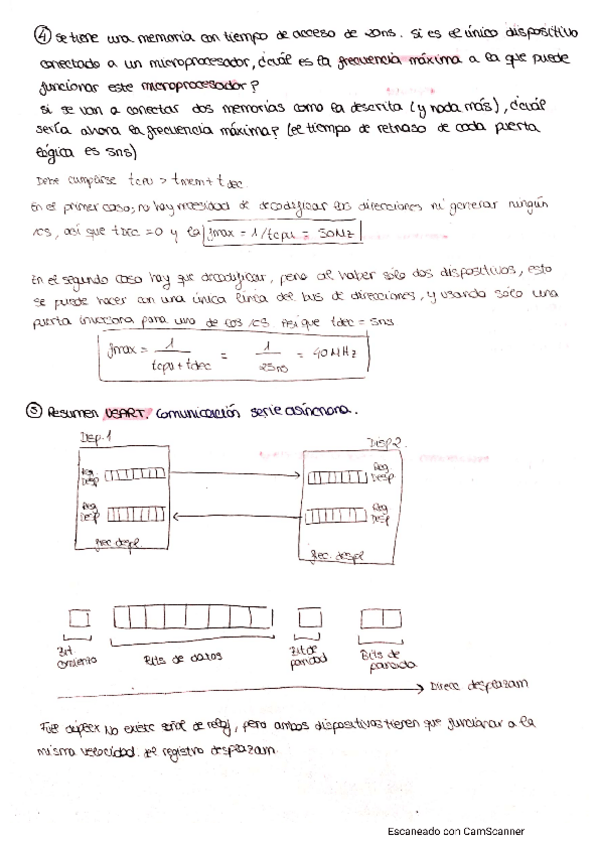 ④ Se tiene una memoria con tiempo de acceso de 20ns. Si es el único dispositivo
conectado a un microprocesador, ¿cuál es la frecuencia máxima a la que puede
funcionar este microprocesador?
Si se van a conectar dos memorias como la descrita (y nada más), ¿cuál
sería ahora la frecuencia máxima? (el tiempo de retraso de cada puerta
lógica es 5ns)
Debe cumplirse tcpu > tmem + tdec
En el primer caso, no hay necesidad de decodificar las direcciones ni generar ningún
/CS, así que tDEC = 0 y la fmax = 1/tcpu = 50Hz
En el segundo caso hay que decodificar, pero al haber sólo dos dispositivos, esto
se puede hacer con una única línea del bus de direcciones, y usando sólo una
puerta inversora para uno de los /CS. Así que tdec = 5ns
fmax = 1 / tcpu + tdec = 1 / 25ns = 40MHz
⑤ Resumen USART. Comunicación serie asíncrona.
Disp. 1
Disp 2.
Reg Desp
Reg Desp
Reg Desp
Reg Desp
Rec. despl.
Rec. despl
Bits de datos
Bit de paridad
Bits de parada
Direcc desplazam
No existe señal de reloj, pero ambos dispositivos tienen que funcionar a la
misma velocidad. del registro desplazam.
Escaneado con CamScanner